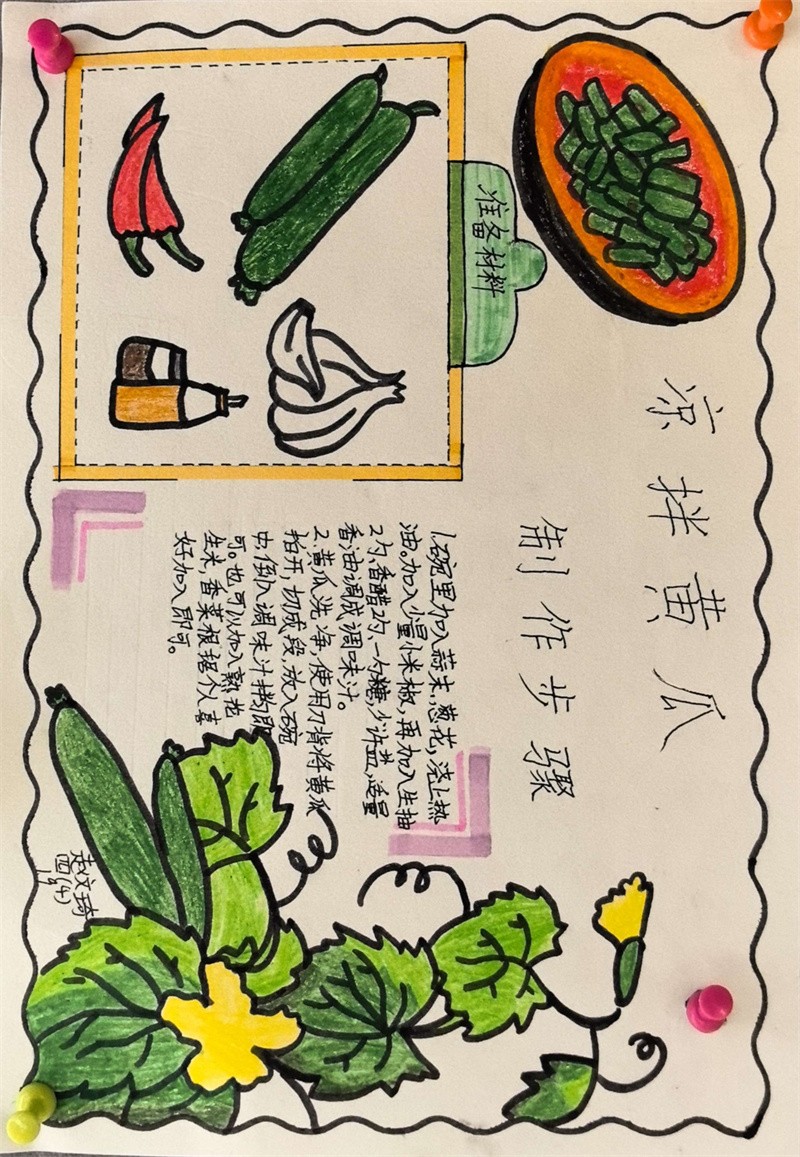 凉拌黄瓜
准备材料
制作步骤
1.碗里加入蒜末,葱花,浇上热
油。加入少量小米椒,再加入生抽
2勺、香醋2勺、一勺糖,少许盐,适量
香油调成调味汁。
2.黄瓜洗净,使用刀背将黄瓜
拍开,切成段,放入碗
中,倒入调味汁拌匀即
可。也可以加入熟花
生米,香菜根据个人喜
好加入即可。
赵文琦
四(4)